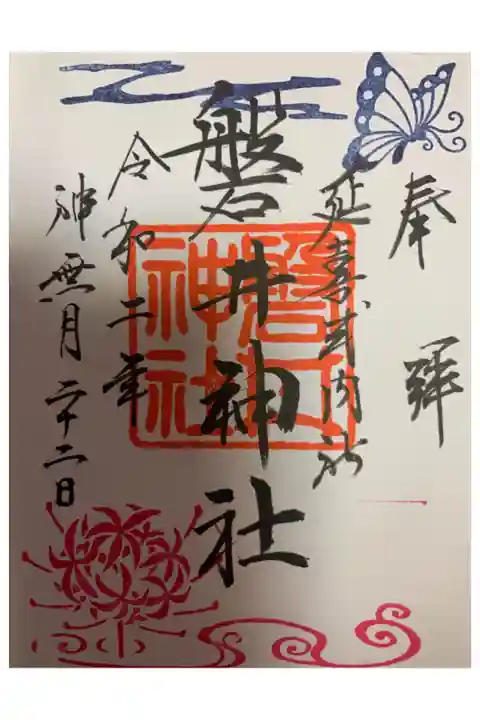 奉拝
延喜式内社
磐井神社
令和二年
神無月二十二日
磐井神社